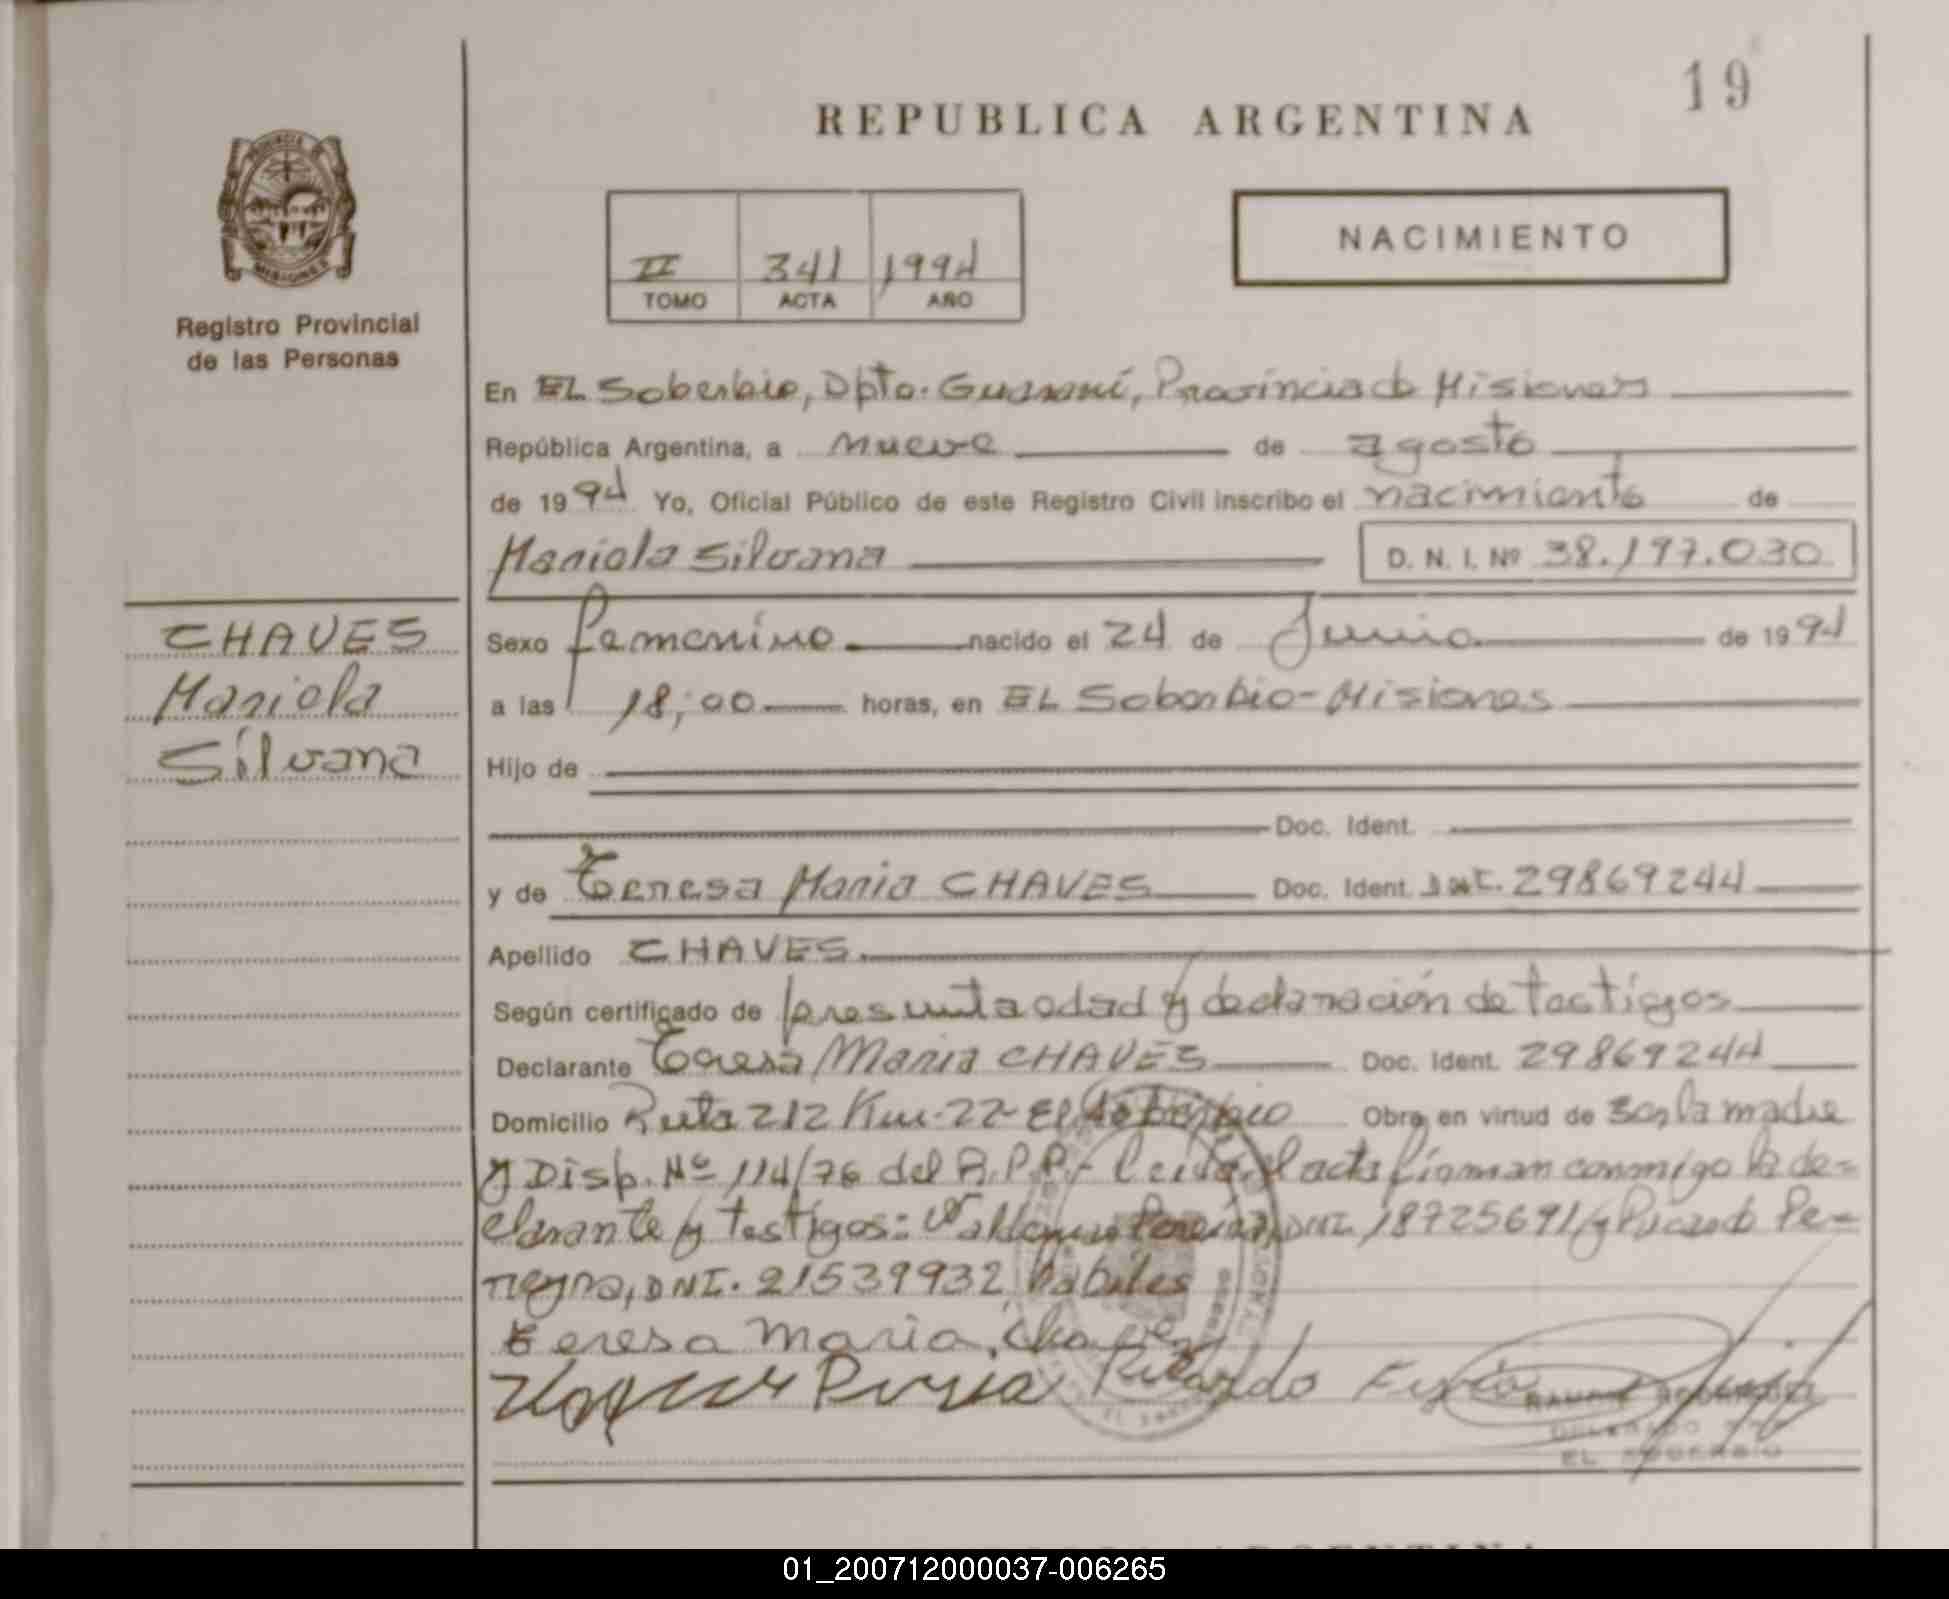 19
REPUBLICA ARGENTINA
PROVINCIA
MISIONES
Registro Provincial
de las Personas
II 341 1994
TOMO ACTA AÑO
NACIMIENTO
En EL Soberbio, Dpto. Guaraní, Provincia de Misiones
República Argentina, a nueve de agosto
de 1994 Yo, Oficial Público de este Registro Civil inscribo el nacimiento de
Mariela Silvana D. N. I. Nº 38.197.030
CHAVES
Mariela
Silvana
Sexo femenino nacido el 24 de Junio de 1994
a las 18,00 horas, en EL Soberbio-Misiones
Hijo de
Doc. Ident.
y de Teresa Maria CHAVES Doc. Ident. DNI. 29869244
Apellido CHAVES
Según certificado de presunta edad y declaración de testigos
Declarante Teresa Maria CHAVES Doc. Ident. 29869244
Domicilio Ruta 212 Km-22-El Soberbio Obra en virtud de ser la madre
y Disp. Nº 114/76 del R.P.P.- Leida el acta firman conmigo la de-
clarante y testigos: DNI. 18725691 y Ricardo
DNI. 21539932 habiles
teresa maria chavez
Ricardo
EL SOBERBIO
01_200712000037-006265